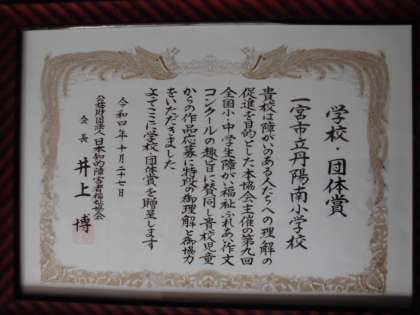 学校・団体賞
一宮市立丹陽南小学校
貴校は障がいのある人たちへの理解の
促進を目的とした本協会主催の第九回
全国小・中学生障がい福祉ふれあい作文
コンクールの趣旨に賛同し貴校児童
からの作品応募に特段の御理解と御協力
をいただきました
よってここに学校・団体賞を贈呈します
令和四年十月二十七日
公益財団法人日本知的障害者福祉協会
会長 井上 博